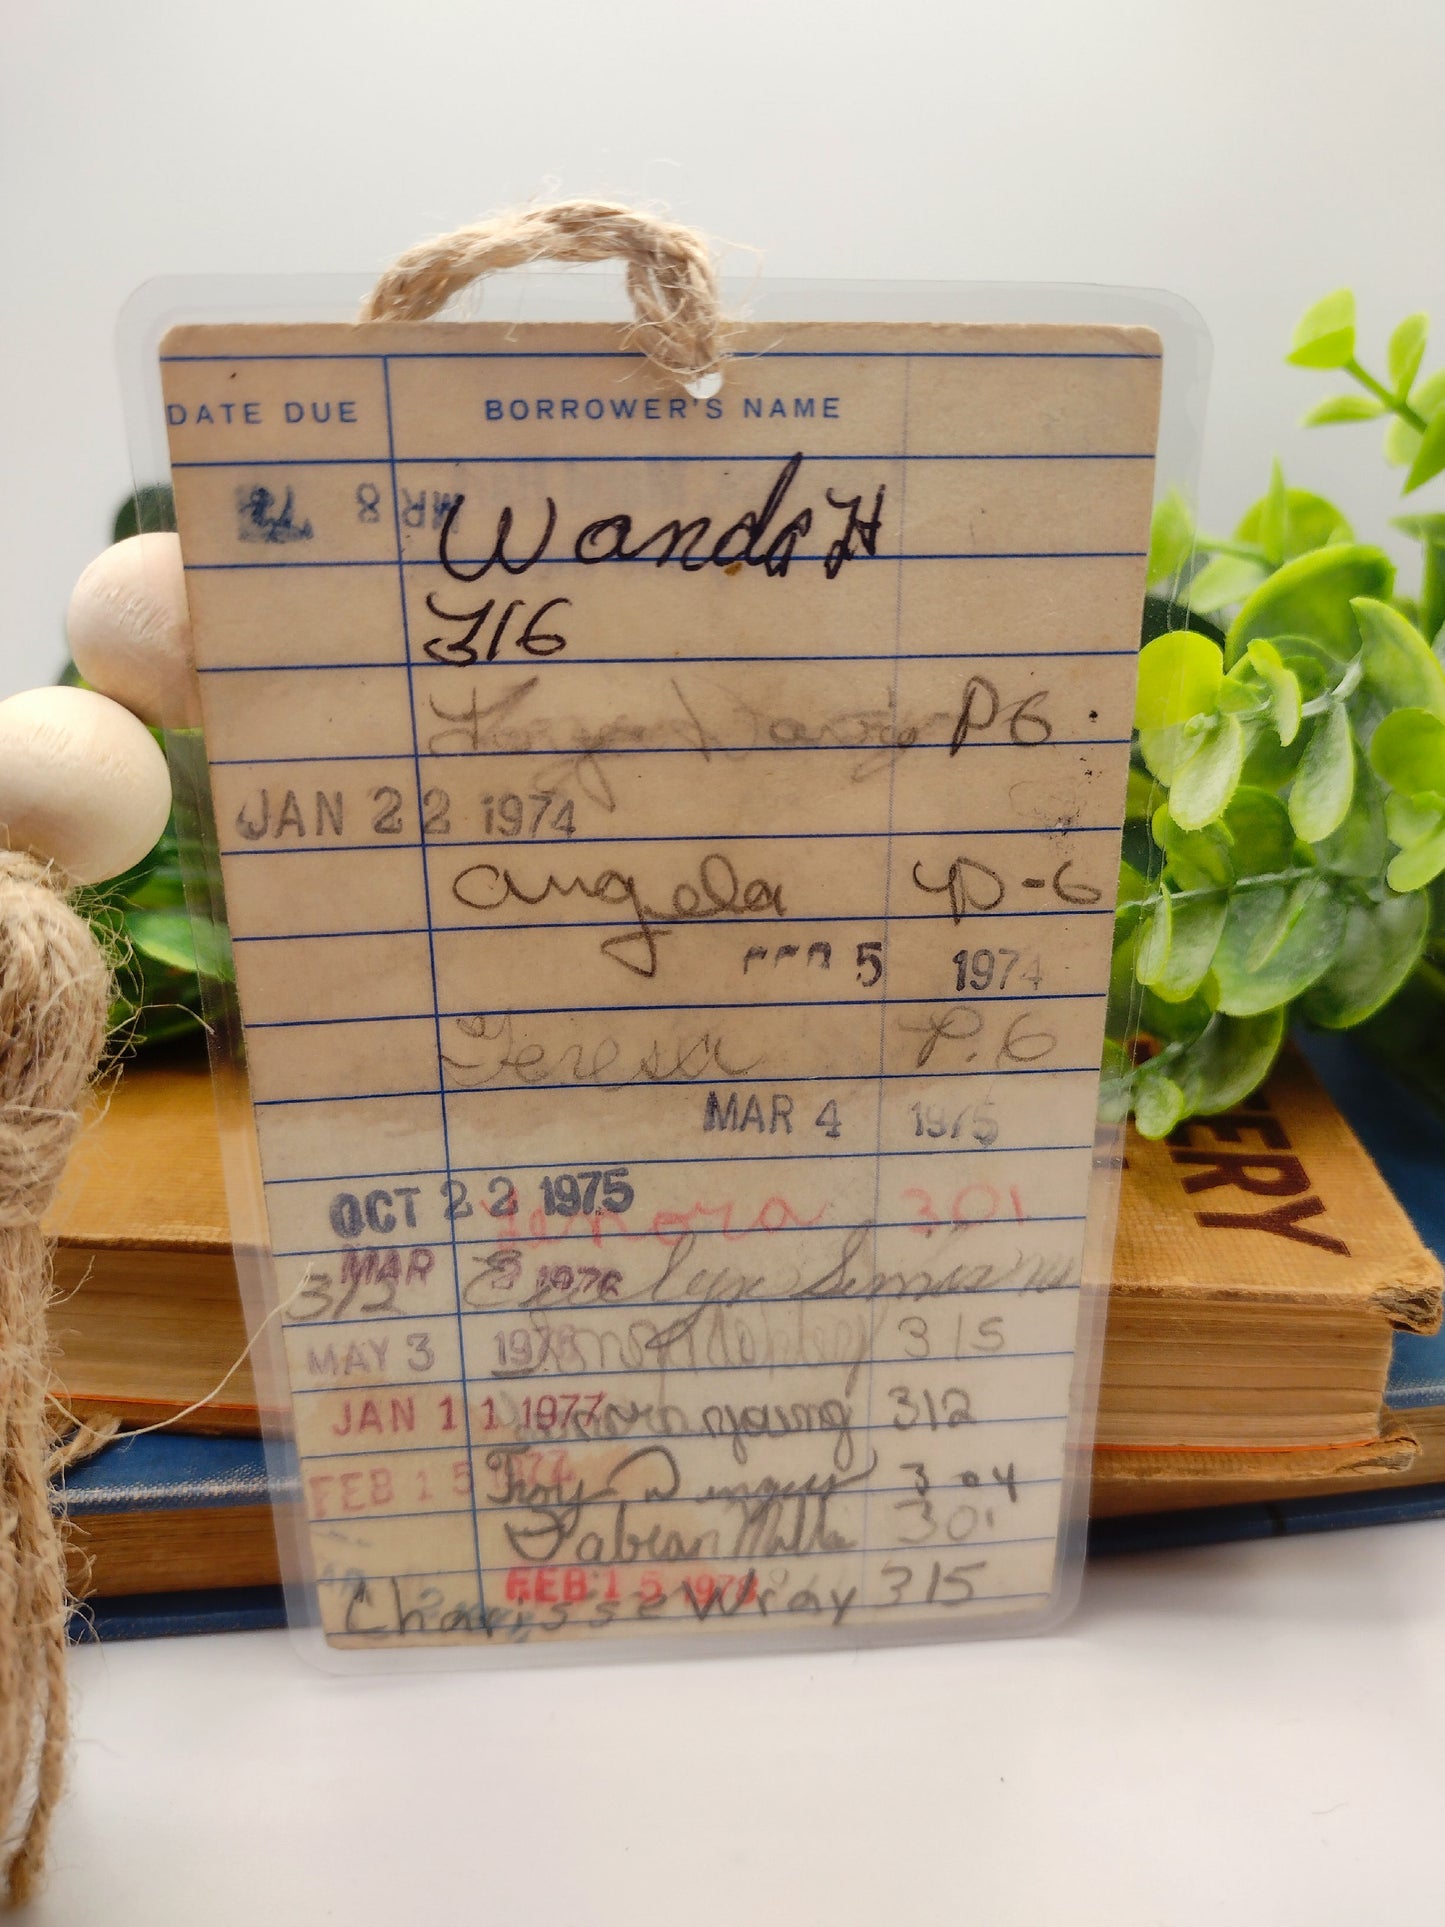 DATE DUE BORROWER'S NAME
MR 8 Wanda H
316
P6
JAN 22 1974
Angela P-6
5 1974
Teresa P.6
MAR 4 1975
OCT 22 1975 Lenora 301
MAR 3 1976
312 Evelyn Simmons
MAY 3 1976 315
JAN 11 1977 young 312
FEB 15 1977 304
Fabian 301
FEB 15 1978
Charisse Wray 315
ERY